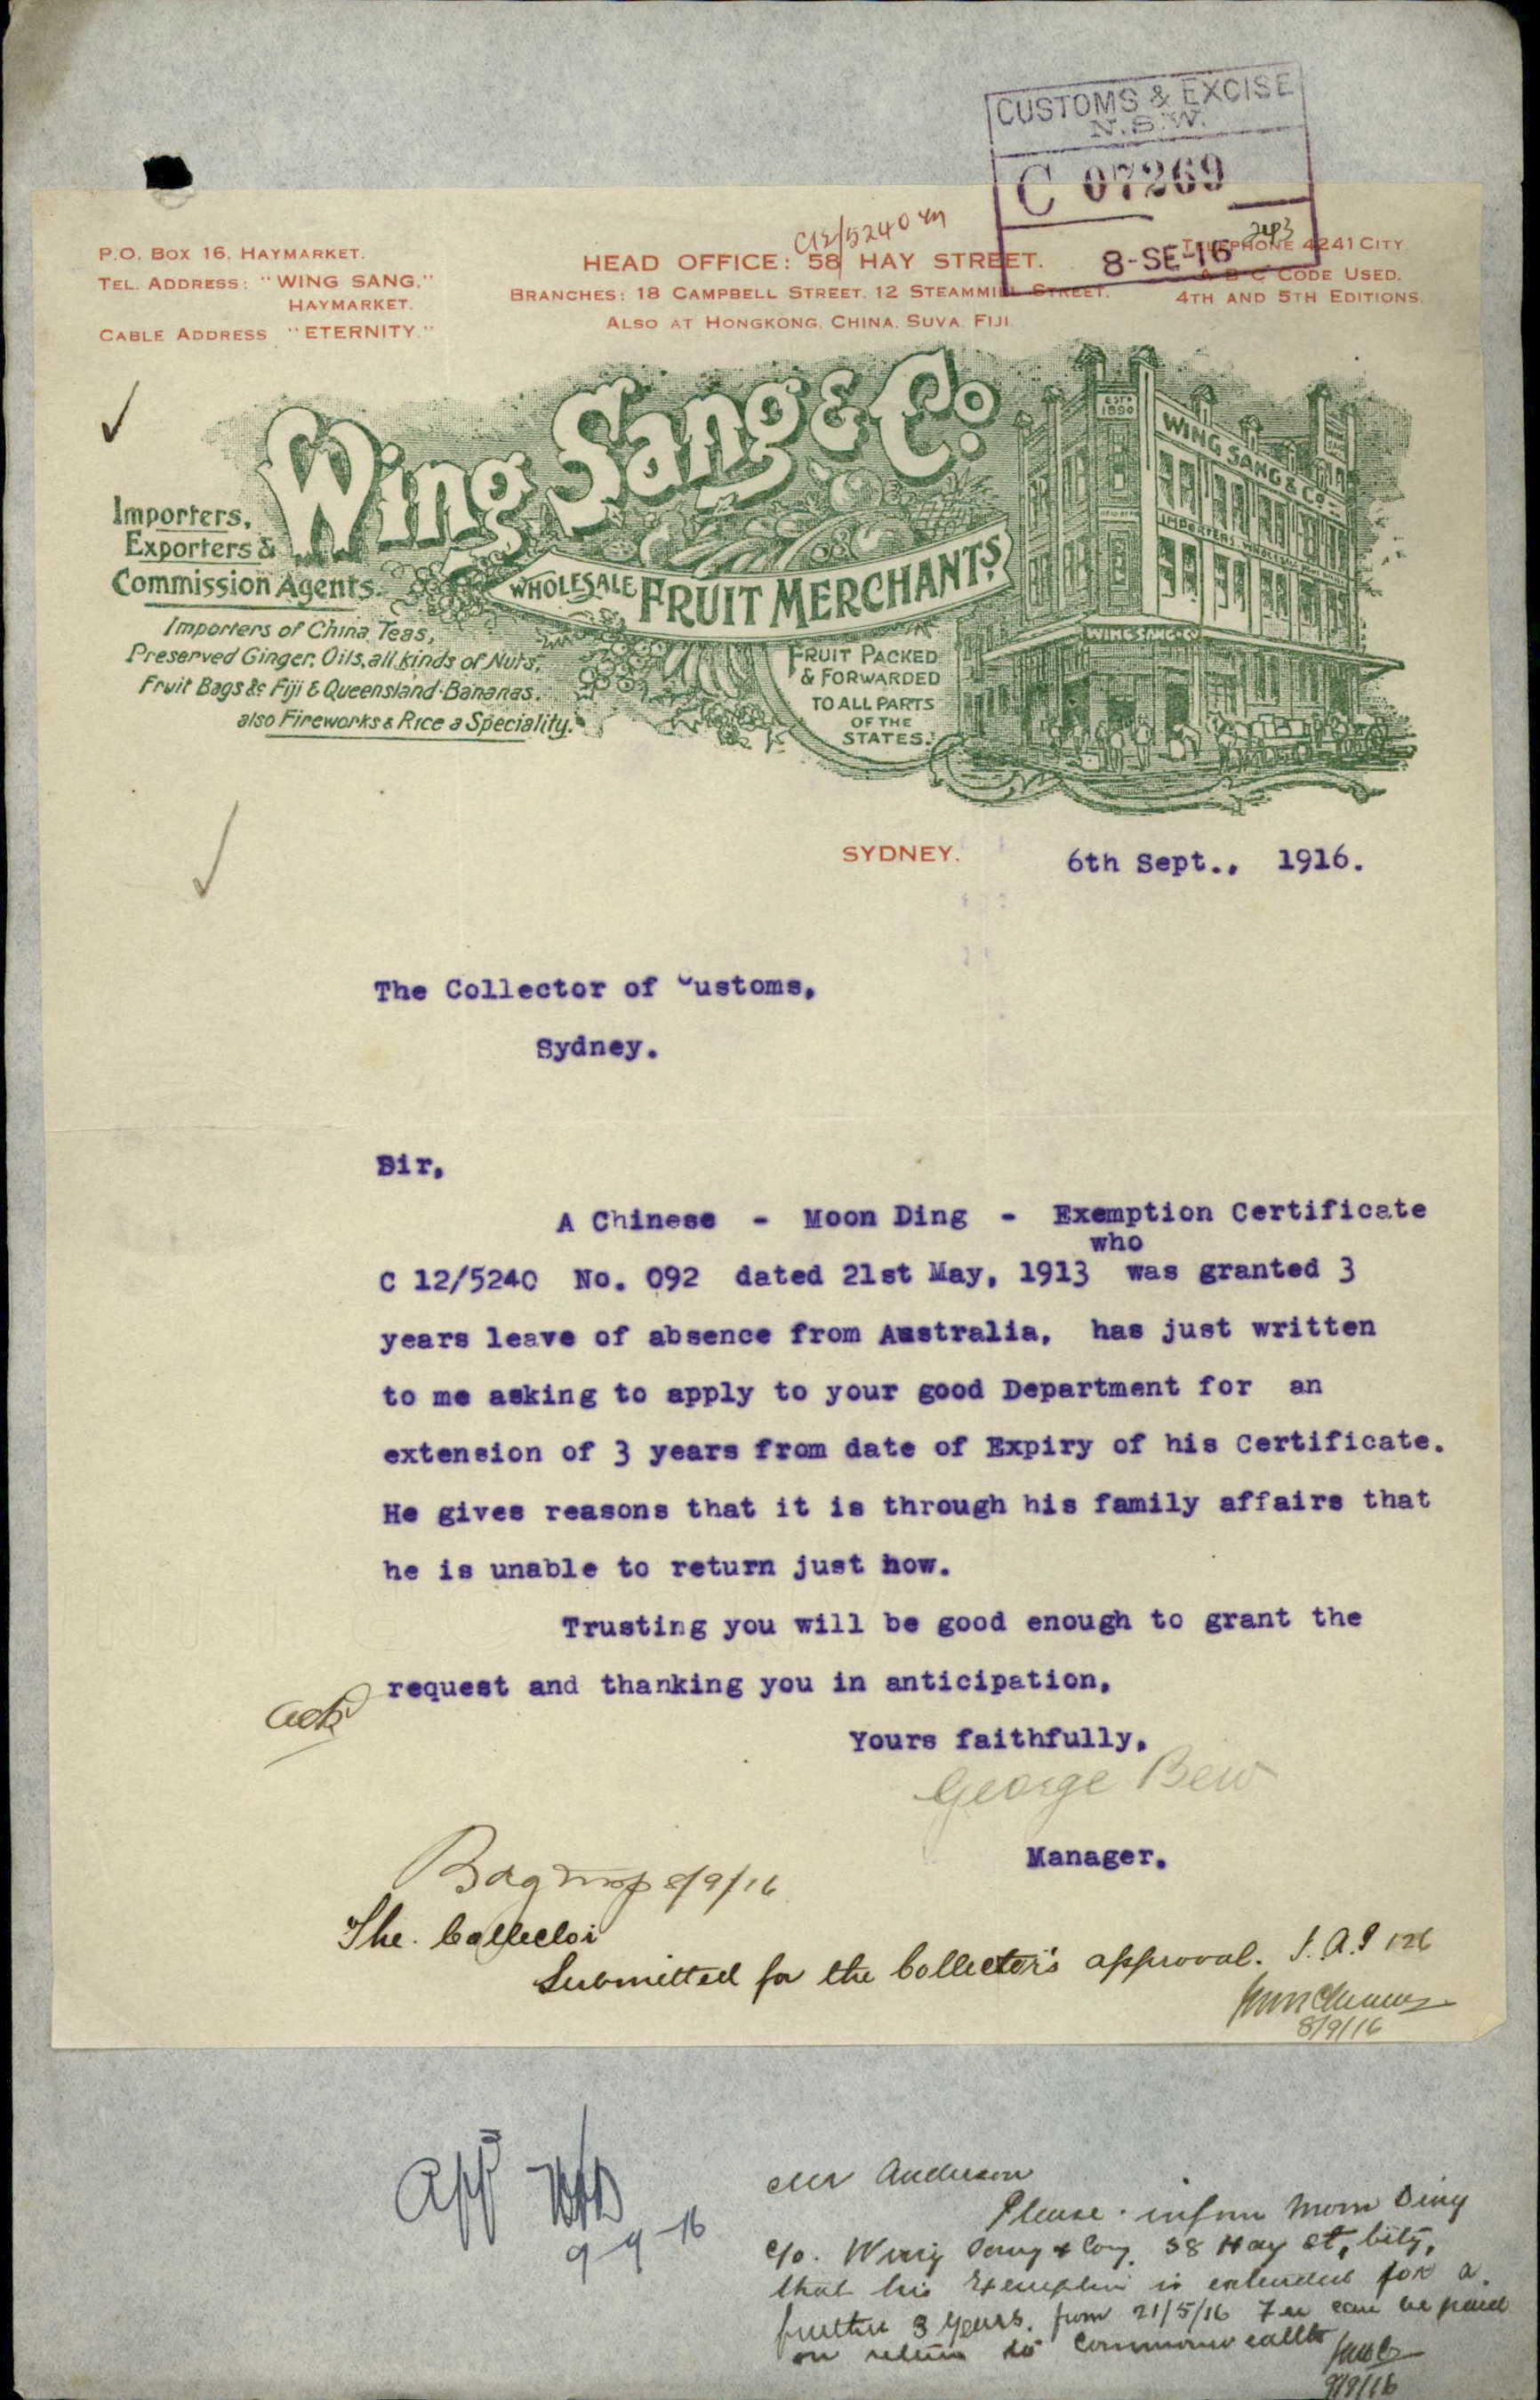 CUSTOMS & EXCISE
N.S.W.
C 07269
8-SE-16
C12/5240
P.O. BOX 16, HAYMARKET.
TEL. ADDRESS: "WING SANG,"
HAYMARKET.
CABLE ADDRESS "ETERNITY."
HEAD OFFICE: 58 HAY STREET.
BRANCHES: 18 CAMPBELL STREET. 12 STEAMMILL STREET.
ALSO AT HONGKONG, CHINA. SUVA. FIJI.
TELEPHONE 4241 CITY.
A B C CODE USED.
4TH AND 5TH EDITIONS.
Wing Sang & Co.
WHOLESALE FRUIT MERCHANTS.
Importers,
Exporters &
Commission Agents.
Importers of China Teas,
Preserved Ginger, Oils, all kinds of Nuts,
Fruit Bags &c Fiji & Queensland Bananas.
also Fireworks & Rice a Speciality.
FRUIT PACKED
& FORWARDED
TO ALL PARTS
OF THE
STATES.
ESTD
1890
WING SANG & CO
IMPORTERS WHOLESALE
WING SANG & CO
SYDNEY. 6th Sept., 1916.
The Collector of Customs,
Sydney.
Sir,
A Chinese - Moon Ding - Exemption Certificate
who
C 12/5240 No. 092 dated 21st May, 1913 was granted 3
years leave of absence from Australia, has just written
to me asking to apply to your good Department for an
extension of 3 years from date of Expiry of his Certificate.
He gives reasons that it is through his family affairs that
he is unable to return just now.
Trusting you will be good enough to grant the
request and thanking you in anticipation,
Yours faithfully,
George Bew
Manager.
Ackd
8/9/16
The Collector
Submitted for the Collector's approval.
8/9/16
App
9-9-16
Mr Anderson
Please inform Moon Ding
c/o. Wing Sang & Coy. 58 Hay St, City,
that his Exemption is extended for a
further 3 years. from 21/5/16 Fee can be paid
on return to Commonwealth
9/9/16